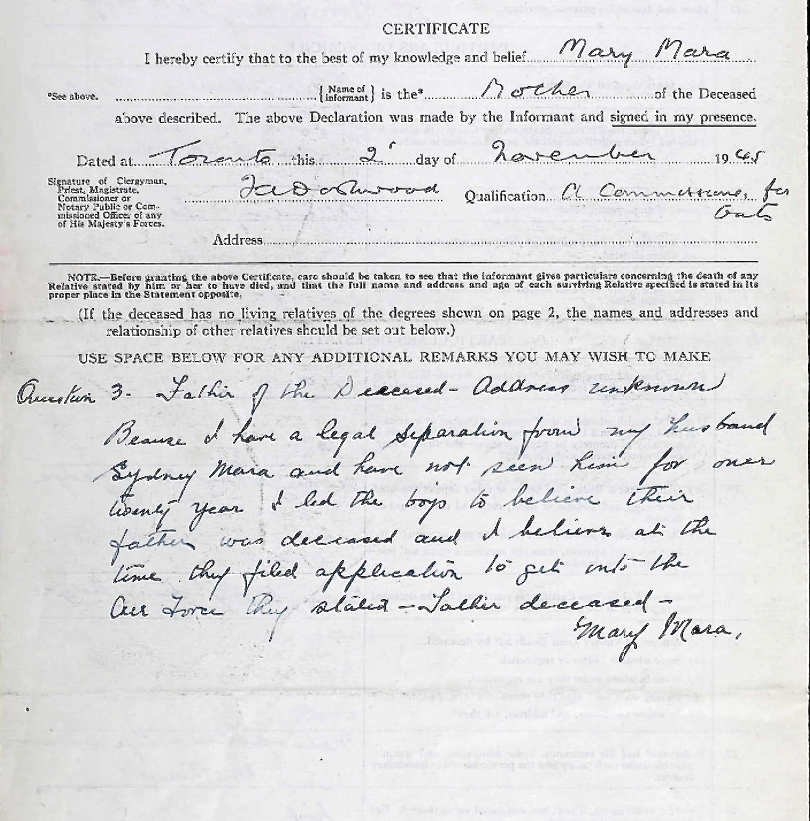 CERTIFICATE
I hereby certify that to the best of my knowledge and belief Mary Mara
*See above. {Name of informant} is the* Mother of the Deceased
above described. The above Declaration was made by the Informant and signed in my presence.
Dated at Toronto this 2 day of November 1945
Signature of Clergyman,
Priest, Magistrate,
Commissioner or
Notary Public or Com-
missioned Officer of any
of His Majesty's Forces.
Qualification A Commissioner, for
Oaths
Address
NOTE.—Before granting the above Certificate, care should be taken to see that the informant gives particulars concerning the death of any
Relative stated by him or her to have died, and that the full name and address and age of each surviving Relative specified is stated in its
proper place in the Statement opposite.
(If the deceased has no living relatives of the degrees shown on page 2, the names and addresses and
relationship of other relatives should be set out below.)
USE SPACE BELOW FOR ANY ADDITIONAL REMARKS YOU MAY WISH TO MAKE
Question 3. Father of the Deceased - Address unknown
Because I have a legal separation from my husband
Sydney Mara and have not seen him for over
twenty year I led the boys to believe their
father was deceased and I believe at the
time they filed application to get into the
Air Force they stated - Father deceased -
Mary Mara,